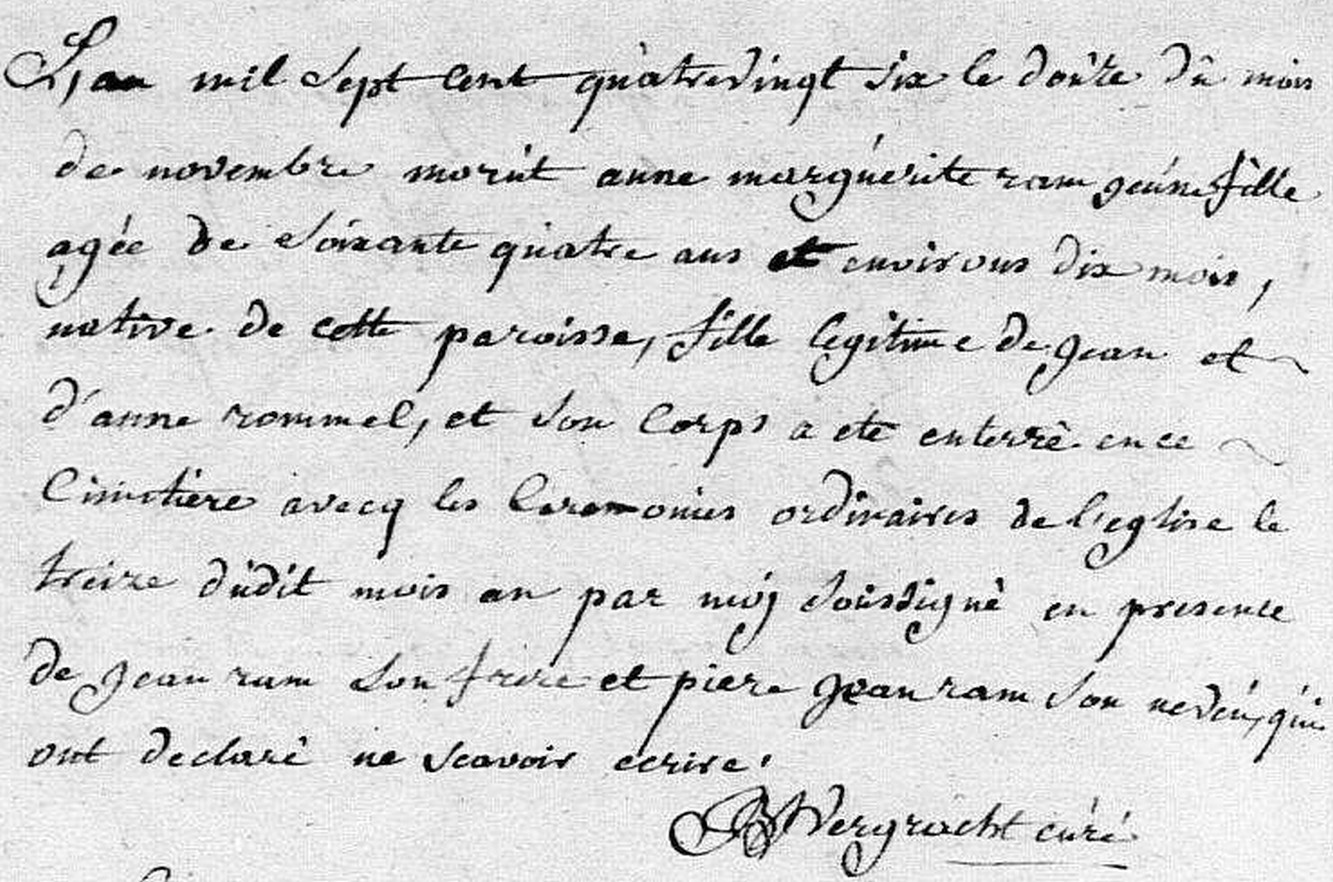 L'an mil sept cent quàtrevingt six le doúze dú mois
de novembre morút anne margúerite ram jeúne fille
agée de soixante qúatre ans et environs dix mois,
native de cette paroisse, fille legitime de jean et
d'anne rommel, et son corps a ete enterrè en ce
Cimetière avecq les Ceremonies ordinaires de l'eglise le
treize dúdit mois an par moj soússignè en presence
de jean ram son frere et piere jean ram son neveú, qúi
ont declarè ne scavoir ecrire.
Vergracht cúré